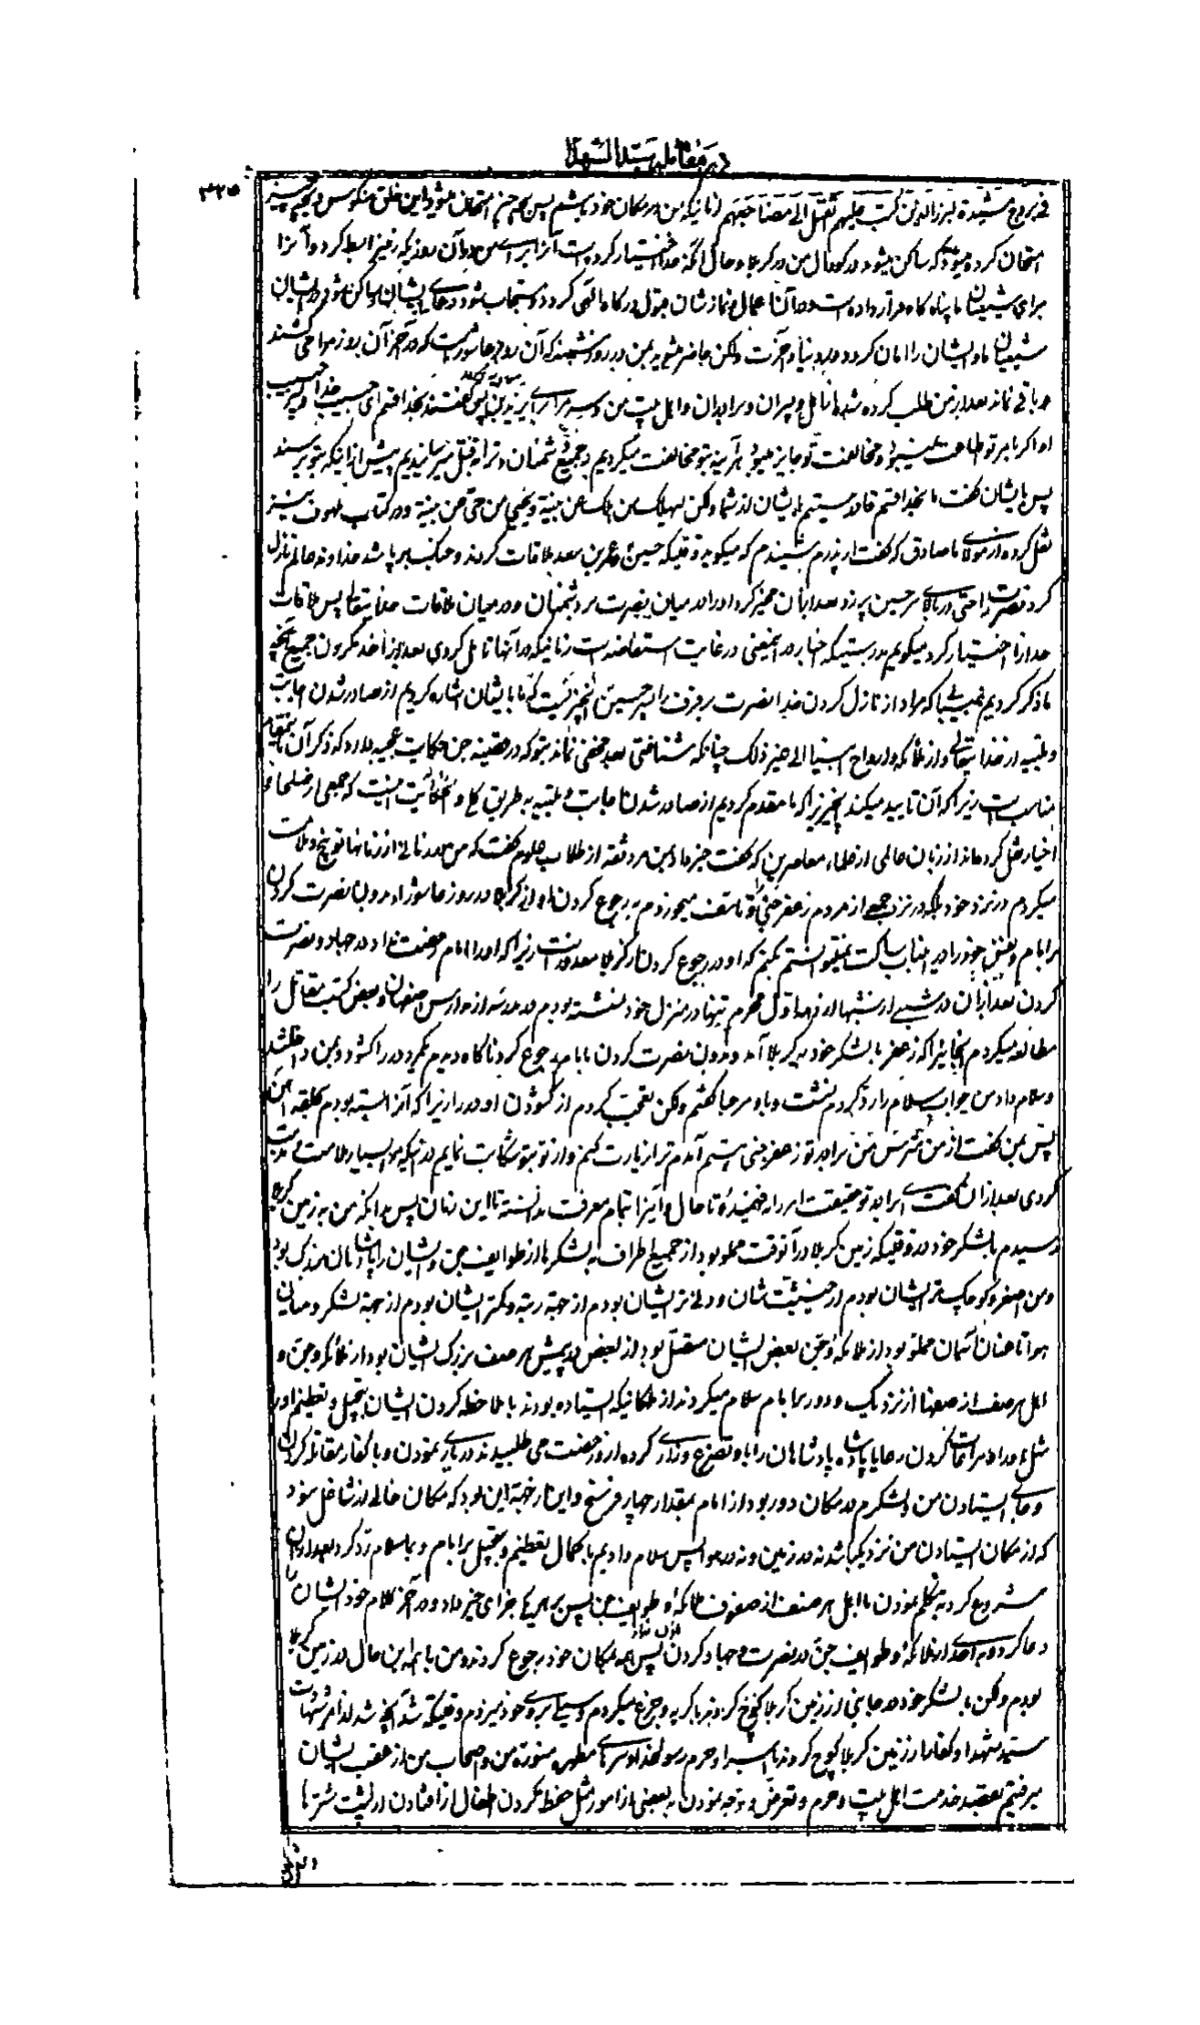 در مقاتله سید الشهدا
۳۲۵
فی بروج مشیدة لبرز الذین کتب علیهم القتل الی مضاجعهم زمانیکه من در مکان خود باشم پس بچه چیز امتحان میشود این خلق منکوس و بچه چیز
امتحان کرده میشوند و که ساکن میشود در گودال من در کربلا و حال آنکه خدا اختیار کرده است آنرا برای من در آن روزیکه زمین را بسط کرده و آنرا
برای شیعیان ما پناه گاه قرار داده است و در آن اعمال و نماز شان مقبول درگاه الهی گردد و مستجاب شود دعای ایشان و ساکن شوند در ایشان
شیعیان ما و ایشان را امان گردد در دنیا و آخرت و لکن حاضر میشوید بمن در روز شنبه که آن روز عاشورا است که در آخر آن روز مرا می کشند
و باقی نماند بعد از من طلب کرده شده از اهل و پسران و برادران و اهل بیت من و سر مرا برای یزید پس گفتند بخدا قسم ای حبیب خدا و پسر حبیب
او اگر امر تو طاعت نمیبود و مخالفت تو جایز میبود هر آینه بتو مخالفت میکردیم و جمیع دشمنان ترا بقتل میرسانیدیم پیش از اینکه بتو برسند
پس بایشان گفت ما بخدا قسم قادرتر هستیم بایشان از شما و لکن لیهلک من هلک عن بینة و یحیی من حی عن بینة و در کتاب لهوف نیز
نقل کرده از مولای ما صادق که گفت از پدرم شنیدم که میگوید وقتیکه حسین و عمر بن سعد ملاقات کردند و جنگ بر پا شد خداوند عالم نازل
کرد نصرت را حتی در بالای سر حسین پر زد بعد از آن مخیر کرد او را در میان نصرت بر دشمنان و در میان ملاقات خدا یتعالی پس ملاقات
خدا را اختیار کرد میگویم بدرستیکه اخبار در این معنی در غایت استفاضه است زمانیکه در آنها تامل کردی بعد از اخذ کردن جمیع آنچه
ما ذکر کردیم نمی باشد که مراد از نازل کردن خدا نصرت بر فرق سر حسین آنچیزیست که ما بایشان اشاره کردیم از صادر شدن اجابت
و تلبیه از خدا یتعالی و از ملائکه و ارواح انبیا الی غیر ذلک چنانکه شناختی بعد مخفی نماند بتو که در قضیه جن حکایت عجیبه دارد که ذکر آن باینمقام
مناسب است زیرا که آن تایید میکند بچیزیکه ما مقدم کردیم از صادر شدن اجابت و تلبیه بطریق کلی و آنحکایت اینست که جمعی از صلحا و
اخیار نقل کرده اند از زبان عالمی از علماء معاصرین که گفت خبر داد بمن مرد ثقه از طلاب علوم گفت که من در زمانی از زمانها توبیخ و ملامت
میکردم در نزد خود بلکه در نزد جمعی از مردم زعفر جنی را و تاسف میخوردم بر رجوع کردن او از کربلا در روز عاشورا بدون نصرت کردن
مر امام و نفس خود را در اینباب ساکت نمیتوانستم بکنم که او در رجوع کردن از کربلا معذور است زیرا که او را امام رخصت نداد در جهاد و نصرت
کردن بعد از آن در شبی از شبهای دهه اول محرم تنها در منزل خود نشسته بودم در مدرسه از مدارس اصفهان و بعض کتب مقاتل را
مطالعه میکردم تا بجائیکه زعفر با لشکر خود به کربلا آمد و بدون نصرت کردن بامام رجوع کرد ناگاه دیدم یکمرد در را کشود و بمن داخل شد
و سلام داد من جواب سلام را رد کردم نشست و باو مرحبا گفتم و لکن تعجب کردم از کشودن او در را زیرا که آنرا بسته بودم بحلقه آهن
پس بمن گفت از من مترس من برادر تو زعفر جنی هستم آمدم ترا زیارت کنم و از تو بتو شکایت نمایم در اینکه مرا بسیار ملامت و مذمت
کردی بعد از آن گفت ای برادر تو حقیقت امر را نه فهمیدهٔ تا حال و آنرا تمام معرفت ندانستهٔ تا این زمان پس بدانکه من به زمین کربلا
رسیدم با لشکر خود در وقتیکه زمین کربلا در آنوقت مملو بود از جمیع اطراف به لشکرها از طوایف جن و ایشان را پادشاهان بزرگ بود
و من اصغر و کوچک تر ایشان بودم از حیثیت شان و دنی تر ایشان بودم از جهة رتبه و کمتر ایشان بودم از جهة لشکر و میان
هوا تا عنان آسمان مملو بود از ملائکه و جن بعض ایشان متصل بود از بعض در پیش هر صف بزرگ ایشان بود از ملائکه و جن و
اهل هر صف از صفها از نزدیک و دور بر امام سلام میکردند از مکانیکه ایستاده بودند با ملاحظه کردن ایشان تبجیل و تعظیم او را
مثل مراعات کردن رعایا پادشاه پادشاهان را با و تضرع و زاری کرده از او رخصت می طلبیدند در یاری نمودن و با کفار مقاتله کردن
و جای ایستادن من و لشکرم در مکان دور بود از امام بمقدار چهار فرسخ و این از جهة این بود که مکان خالی از شاغل نبود
که از مکان ایستادن من نزدیکتر باشد نه در زمین و نه در هوا پس سلام دادیم با کمال تعظیم و تبجیل بر امام و بما سلام رد کرد بعد از آن
شروع کرد به تکلم نمودن با اهل هر صنف از صفوف ملائکه و طوایف جن پس بهر یکی جزای خیر داد و در آخر کلام خود ایشان را
دعا کرد و به احدی از ملائکه و طوایف جن در نصرت و جهاد کردن اذن نداد پس همه بمکان خود رجوع کردند و من با همه این حال در زمین کربلا
بودم و لکن با لشکر خود در جانبی از زمین کربلا کوچ کرده با گریه و جزع میکردم و سیلی بروی خود میزدم وقتیکه شد آنچه شد از امر شهادت
سید شهدا و کفار از زمین کربلا کوچ کردند با اسیران حرم رسولخدا و سرهای مطهره منوره من و اصحاب من از عقب ایشان
میرفتیم بقصد خدمت اهل بیت و حرم و تعرض و توجه نمودن به بعضی از امور مثل حفظ کردن اطفال از افتادن از پشت شترها